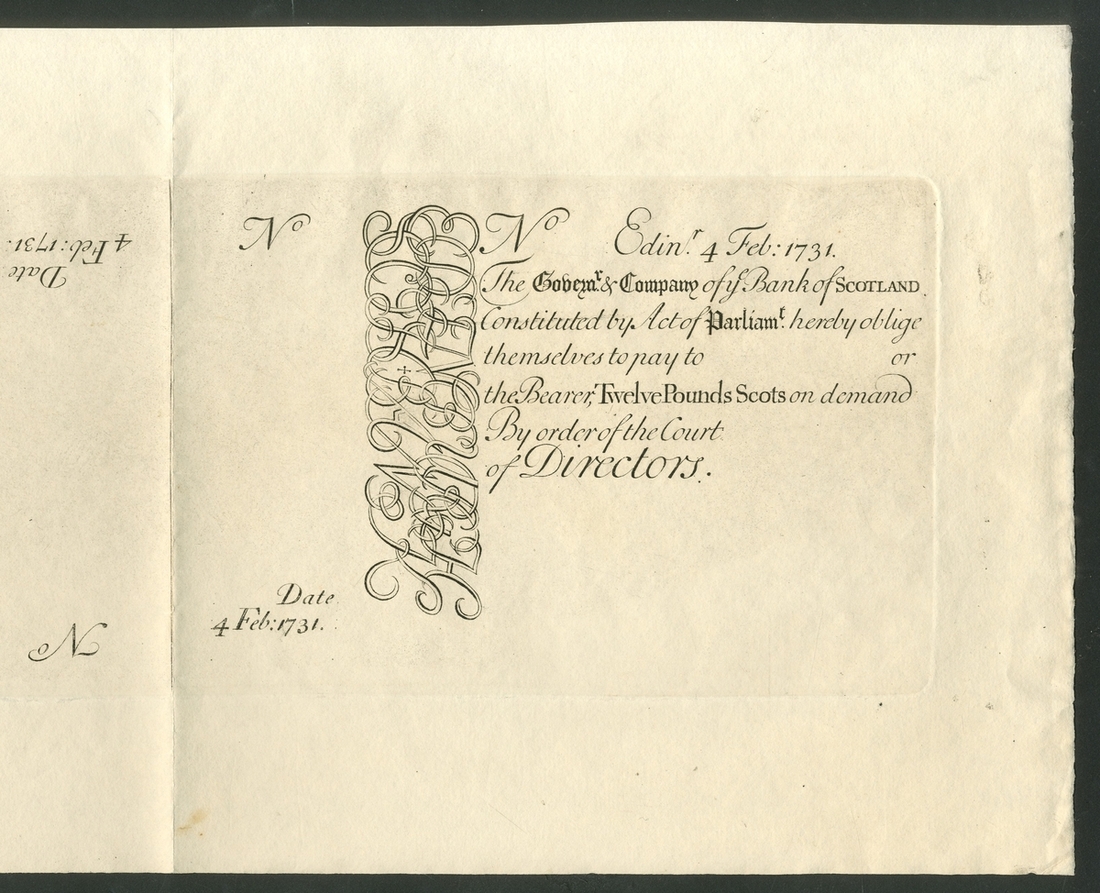 4 Feb: 1731.
Date
No
No
Date
4 Feb: 1731.
No Edinr. 4 Feb: 1731.
The Governr. & Company of ye Bank of SCOTLAND.
Constituted by Act of Parliamt. hereby oblige
themselves to pay to or
the Bearer, Twelve Pounds Scots on demand
By order of the Court
of Directors.